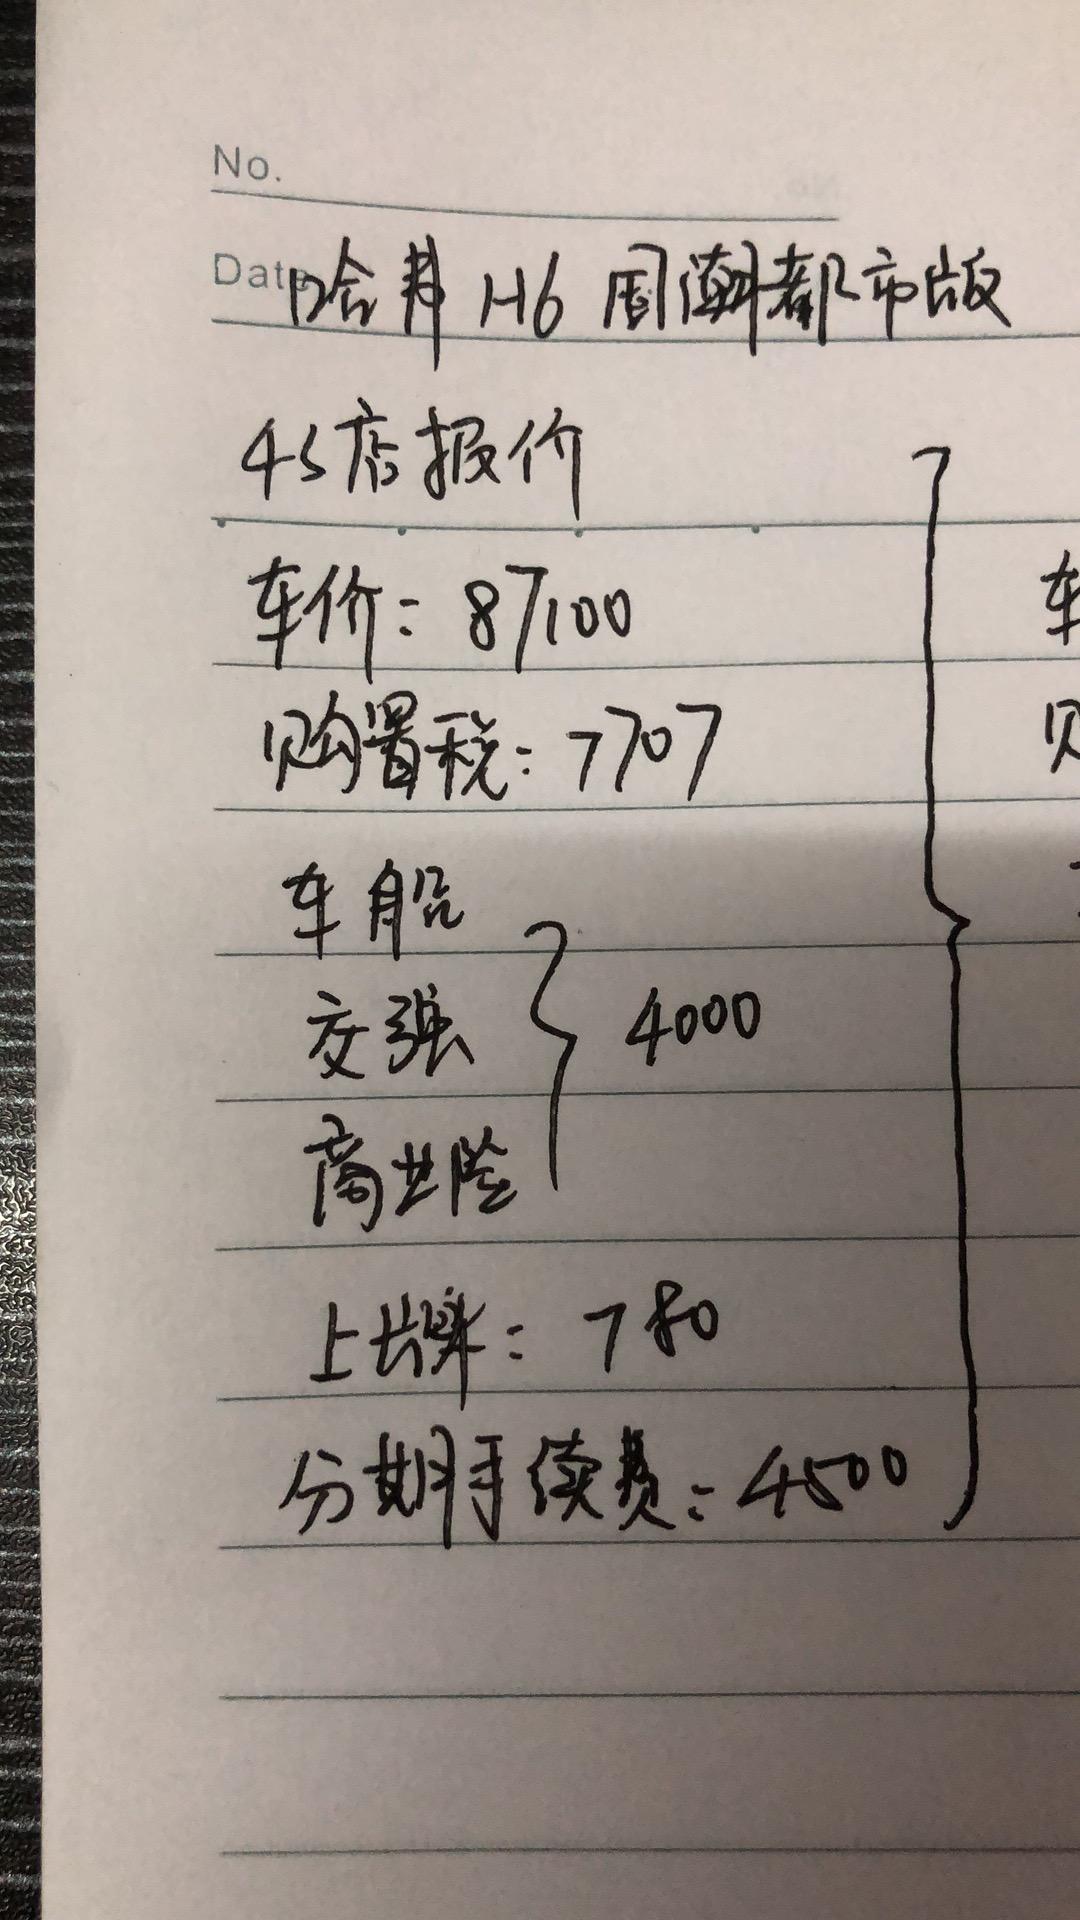 No.
Date
哈弗 H6 国潮都市版
4S店报价
车价: 87100
购置税: 7707
车船
交强
4000
商业险
上牌: 780
分期手续费: 4500
车